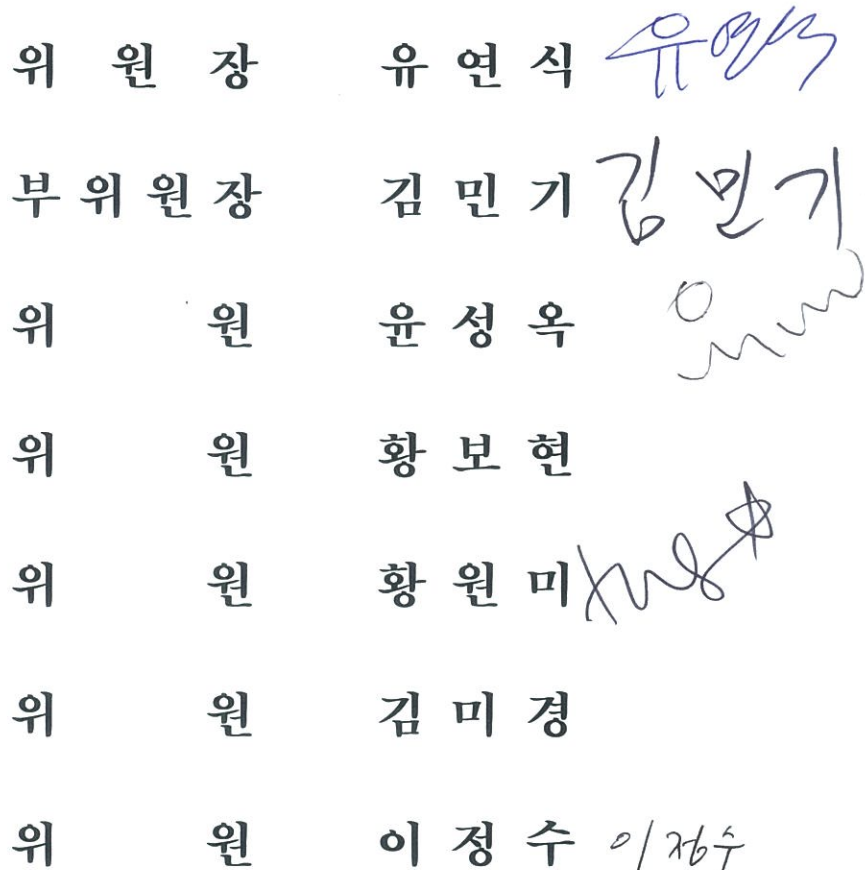 위 원 장 유 연 식 유연식
부 위 원 장 김 민 기 김민기
위 원 윤 성 옥
위 원 황 보 현
위 원 황 원 미
위 원 김 미 경
위 원 이 정 수 이정수